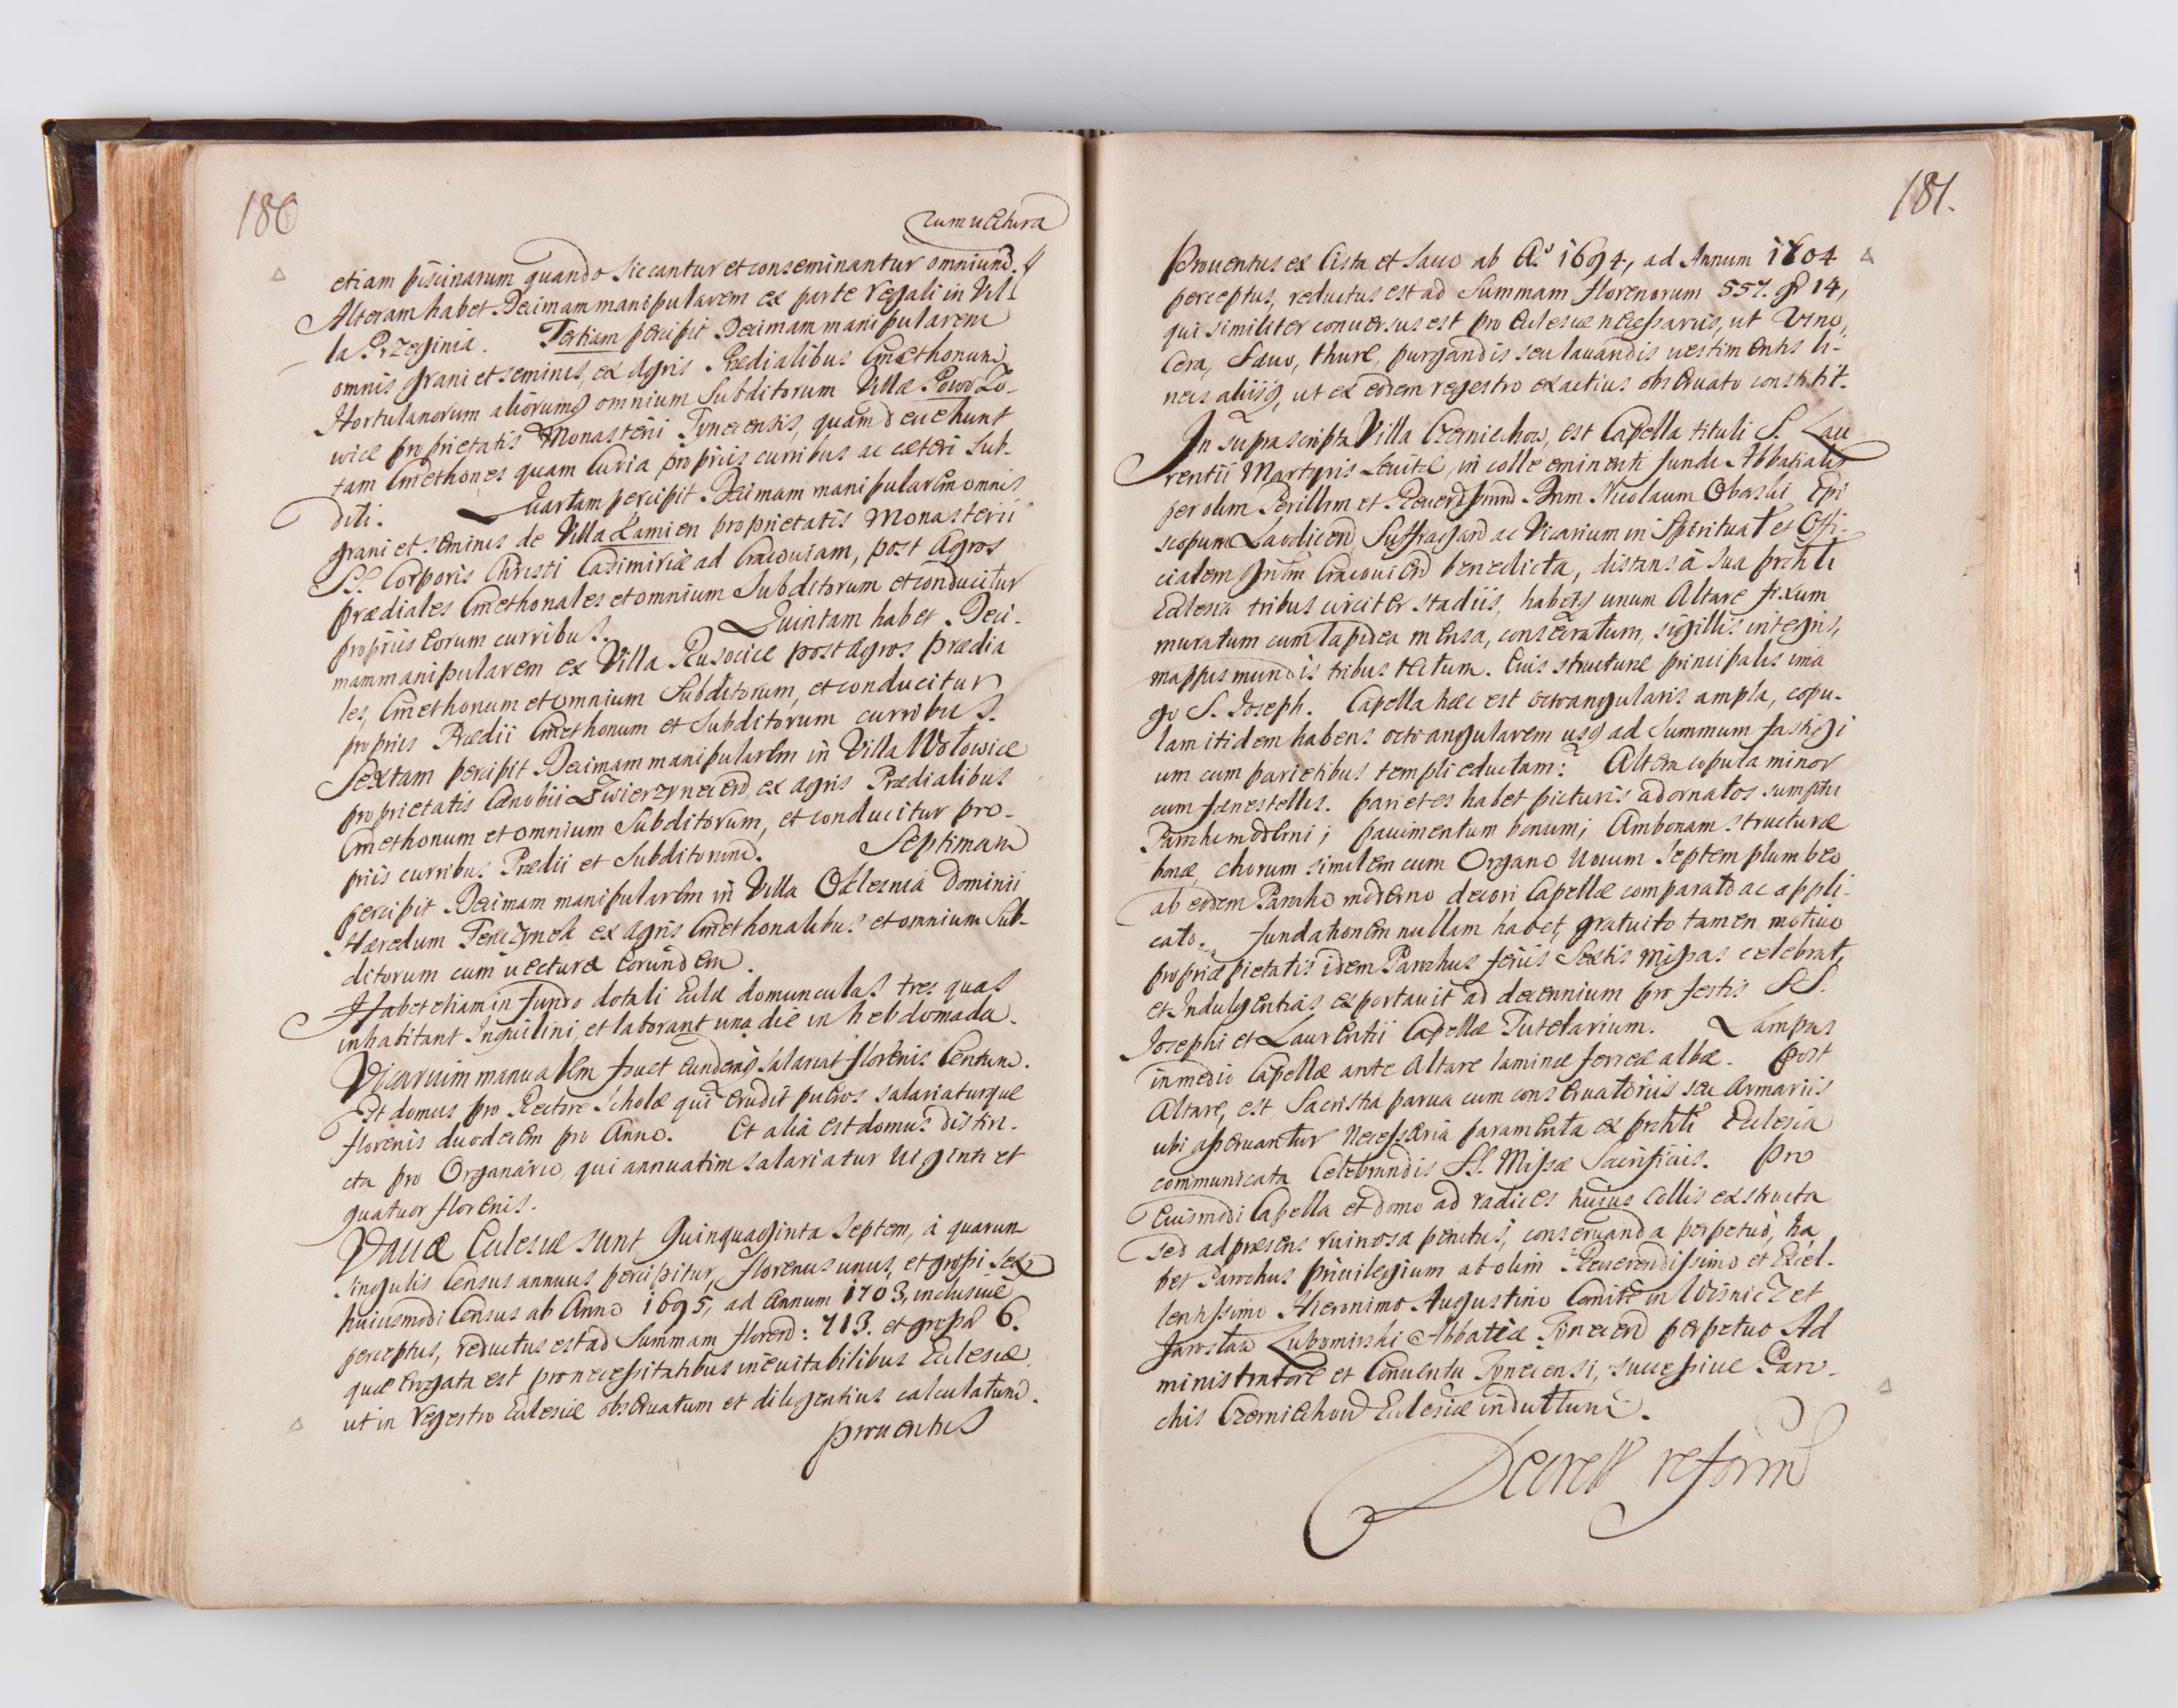 180
cum uectura
etiam piscinarum quando siccantur et conseminantur omnium.
Alteram habet Decimam manipularem ex parte Regali in Vil-
la Przeginia. Tertiam percipit Decimam manipularem
omnis grani et seminis, ex Agris Prædialibus Cmethonum
Hortulanorum aliorumq omnium Subditorum Villæ Powo Zo-
wice proprietatis Monasterii Tynecensis, quam deuehunt
tam Cmethones quam Curia propriis curribus ac cæteri Sub-
diti. Quartam percipit Decimam manipularem omnis
grani et seminis de Villa Kamien proprietatis Monasterii
SS. Corporis Christi Casimiriæ ad Cracouiam, post Agros
prædiales Cmethonales et omnium Subditorum et conducitur
propriis eorum curribus. Quintam habet Deci-
mam manipularem ex Villa Rusocice post Agros Prædia
les, Cmethonum et omnium Subditorum, et conducitur
propriis Prædii Cmethonum et Subditorum curribus.
Sextam percipit Decimam manipularem in Villa Wołowice
proprietatis Cænobii Zwierzynecen, ex agris Prædialibus
Cmethonum et omnium Subditorum, et conducitur pro-
priis curribus Prædii et Subditorum. Septimam
percipit Decimam manipularem in Villa Oklesnia Dominii
Hæredum Tenczynek ex Agris Cmethonalibus et omnium Sub-
ditorum cum uectura eorundem.
Habet etiam in fundo dotali Eccl domunculas tres quas
inhabitant Inquilini, et laborant una die in hebdomada.
Vicarium manualem fouet eundemq salariat florenis Centum.
Est domus pro Rectore Scholæ qui erudit pueros salariaturque
florenis duodecim pro Anno. Et alia est domus distin-
cta pro Organario, qui annuatim salariatur Uiginti et
quatuor florenis.
Vaccæ Eclesiæ sunt Quinquaginta Septem, à quarum
singulis Census annuus percipitur, florenus unus, et grossi sex
huiusmodi Census ab Anno 1695, ad Annum 1703, inclusiue
perceptus, reductus est ad Summam floren: 713. et gross 6.
quæ erogata est pro necessitatibus ineuitabilibus Eclesiæ,
ut in Regestro Eclesiæ obseruatum et diligentius calculatum.
prouentus
181.
Prouentus ex Cista et Sacco ab Aº 1694, ad Annum 1804
perceptus, reductus est ad Summam florenorum 557. gr 14,
qui similiter conuersus est pro Eclesiæ necessariis, ut Vino,
Cera, Sæuo, thure, purgandis seu lauandis uestimentis li-
neis aliisq, ut ex eodem regestro exactius obseruato constitit.
In suprascripta Villa Czerniechow, est Capella tituli S. Lau
rentii Martyris Leuitæ, in colle eminenti fundi Abbatialis
per olim Perillrm et Reuerdssimum Dnm Nicolaum Oborski Epi
scopum Laodicen, Suffragan ac Vicarium in Spiritual et Offi-
cialem Gnlm Cracouien benedicta, distans à sua prchli
Eclesia tribus circiter stadiis, habetq unum Altare fixum
muratum cum lapidea mensa, consecratum, sigillis integris,
mappis mundis tribus tectum. Cuis structuræ principalis ima
go S. Joseph. Capella hæc est octoangularis ampla, copu-
lam itidem habens octoangularem usq ad Summum fastigi
um cum parietibus templi eductam: Altera copula minor
cum fenestellis. parietes habet picturis adornatos sumptu
Parochi moderni; pauimentum bonum; Ambonam structuræ
bonæ, chorum similem cum Organo Uocum Septem plumbeo
ab eodem Parocho moderno decori Capellæ comparato ac appli-
cato. Fundationem nullam habet, gratuito tamen motiuo
propriæ pietatis idem Parochus feriis Sextis Missas celebrat,
et Indulgentias exportauit ad decennium pro festis SS.
Josephi et Laurentii Capellæ Tutelarium. Lampas
in medio Capellæ ante Altare laminæ ferreæ albæ. Post
Altare, est Sacristia parua cum conseruatoriis seu Armariis
ubi asseruantur Necessaria paramenta ex prchli Eclesia
communicata Celebrandis SS. Missæ Sacrificiis. Pro
Cuiusmodi Capella et domo ad radices huius Collis exstructa
sed ad præsens ruinosa penitus, conseruanda perpetuò, ha
bet Parochus Priuilegium ab olim Reuerendissimo et Excel-
lentissimo Hieronimo Augustino Comite in Wisnicz et
Jarosław Lubomirski Abbatiæ Tynecen perpetuo Ad
ministratore et Conuentu Tynecensi, successiue Paro-
chis Czerniechow Eclesiæ indultum.
Decret reform